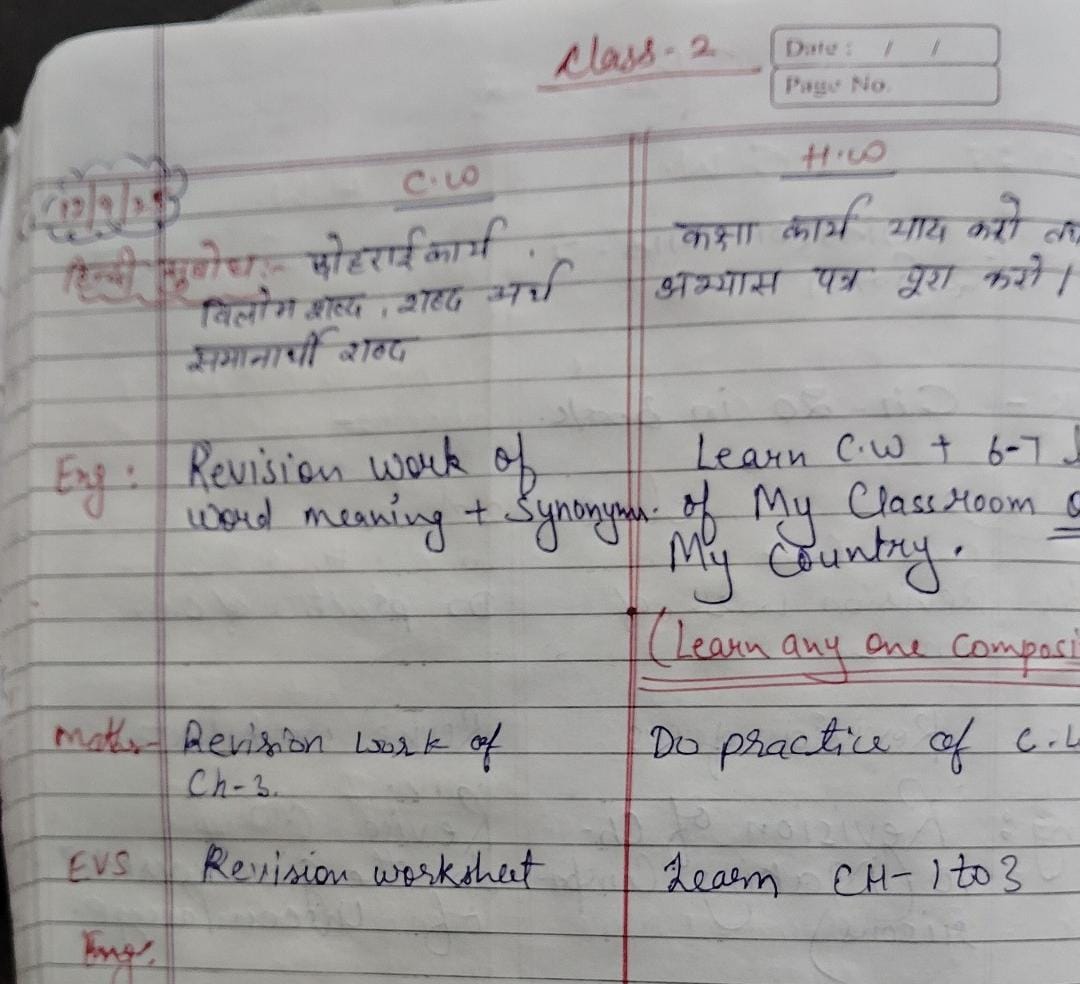 Class-2
Date : / /
Page No.
C.W
H.W
हिन्दी सुबोध:- दोहराई कार्य
कक्षा कार्य याद करो
विलोम शब्द, शब्द अर्थ
अभ्यास पत्र पूरा करो।
समानार्थी शब्द
Eng: Revision work of
Learn C.W + 6-7
word meaning + Synonyms.
of My Classroom
My Country.
(Learn any one Composi
Maths- Revision work of
Do practice of C.
Ch-3.
EVS Revision worksheet
Learn CH-1 to 3
Eng.